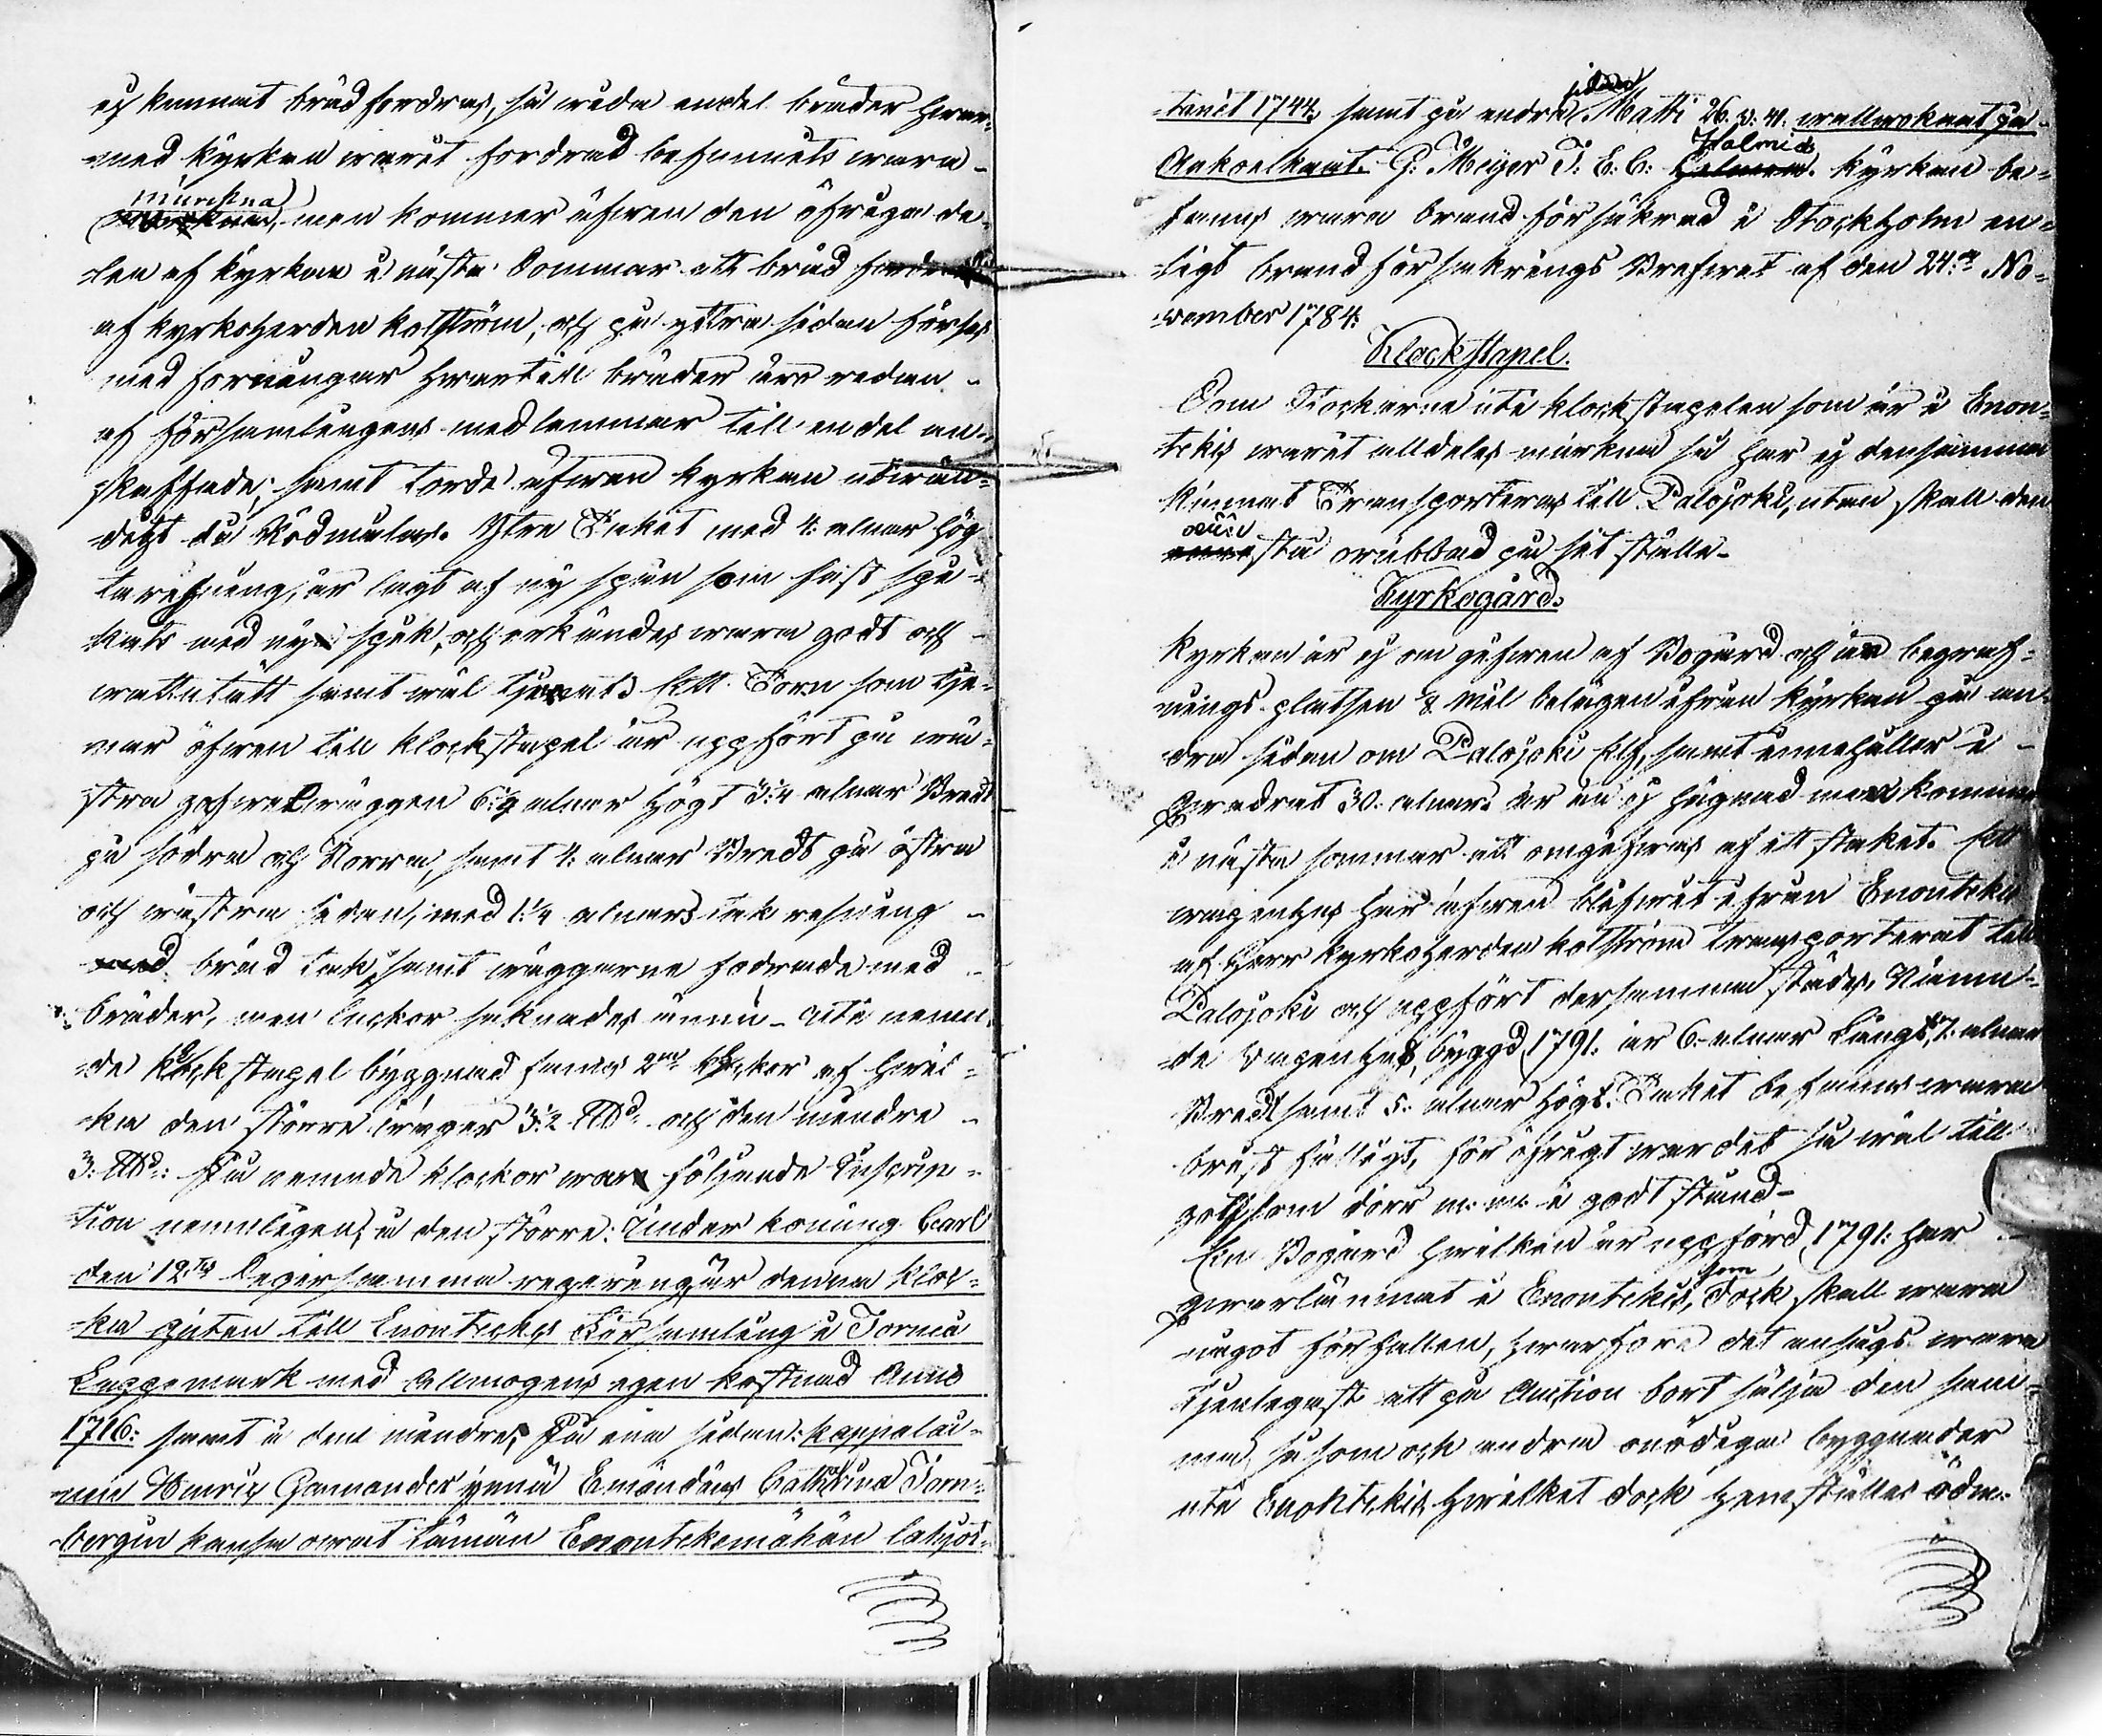 ej kunnat brädfordras, så wida endel bräder hwar-
med kyrkan warit fordrad befunnits wara
murkna
men kommer äfwen den öfriga de-
len af kyrkan i nästa Sommar att bräd fordras
af kyrkoherden Kolström, och på yttra sidan förses
med forningar hwartill bräder äro redan
af församlingens medlemmar till endel an-
skaffade, samt torde äfwen kyrkan utwän-
digt då Rödmålas. Yttra Taket med 4: alnar hög
takresning, är lagt af ny spån som fäst spi-
kats med ny spik, och erkändes wara godt och
wattutätt samt wäl tjärat. Ett Torn som tje-
nar äfwen till klockstapel är uppfört på wä-
stra gafwelwäggen 6 1/2 alnar högt 3 1/4 alnar Bredt
på södra och Norra, samt 4: alnar Bredt på östra
och wästra sidan, med 1 1/4 alnars tak resning
med bräd tak, samt wäggarne fodrade med
bräder, men luckor saknades ännu. Uti nemn-
de klockstapel byggnad finnes 2ne klockor af hwil-
ka den större wäger 3 1/2 och den mindre
3: På nemnde klockor war följande Inscrip-
tion nemnligen, å den större: Under konung Carl
den 12:tes Segersamma regering är denna kloc-
ka guten till Enonteckis Församling i Torneå
Lappemark med Allmogens egen kostnad Anno
1716: samt å den mindre, På ena sidan: kappalai-
nen Henric Ganander ynnä Emändäns Catharina Forn-
bergin kansa owat tämän Enontekemähän lahjoi-
sidan
tanet 1744. samt på andra Matti 26. v: 41. walwokaat ja
Rukoelkaat. G: Meyer I: E: C: Holmiæ kyrkan be-
fanns wara brandförsäkrad i Stockholm en-
ligt brandförsäkrings Brefwet af den 24:de No-
vember 1784:
Klockstapel.
Som Stockarne uti klockstapelen som är i Enon-
tekis warit alldeles murkna så har ej densamma
kunnat Transporteras till Palojoki, utan skall den
stå orubbad på sit ställe
Kyrkogård.
Kyrkan är ej omgifwen af Bogård och är begraf-
nings platsen 1/8 mil belägen ifrån kyrkan på an-
dra sidan om Palojoki Elf, samt innehåller i
Qvadrat 30. alnar. är än ej hägnad men kommer
i nästa sommar att omgifwas af ett staket. Ett
wapenhus har äfwen blifwit ifrån Enontekis
af Herr kyrkoherden Kolström transporterat till
Palojoki och uppfört dersammastädes. Nämn-
de wapenhus, byggd 1791. är 6. alnar Långt, 7. alnar
Bredt samt 5: alnar högt. Taket befanns wara
bristfälligt, för öfrigt war det så wäl till
golf som dörr m. m. i godt stånd
En Bogård hwilken är uppförd 1791: har
som
qwarlämnat i Enontekis, dock skall wara
något förfallen, hwarföre det ansågs wara
tjenligast att på Auction bort sälja den sam-
ma såsom ock andra onödiga byggnader
uti Enontekis, hwilket dock hemställes ödm: